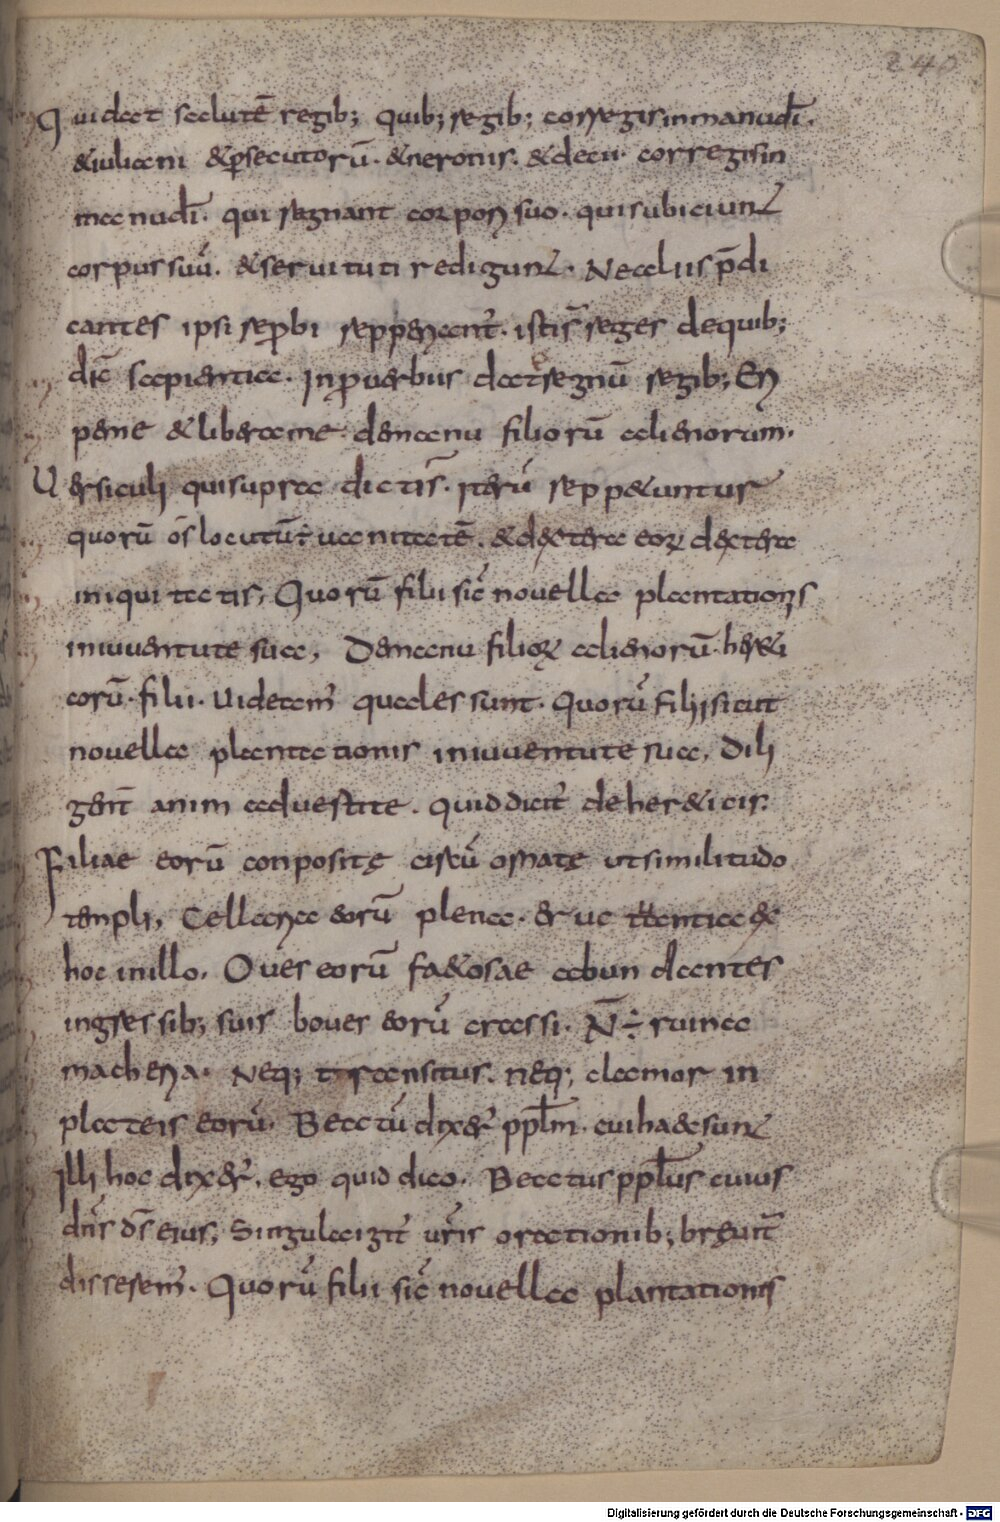 240
Qui dat salutē regib; quib; regib; cor regis in manu dī.
& iuliani & p̄secutorū. & neronis. & decii. cor regis in
manu dī. qui regnant corpori suo. qui subiciunt
corpus suū. & seruituti redigunt. Ne alīis p̄di
cantes ipsi repbi repperiant̄. istis reges de quib;
dic̄ sapientiae. In ꝓuerbiis dat regnū regib; Eri
pe me & libera me de manu filiorū alienorum.
Uersiculi qui supra dictis̄. iterū reppetuntur
quorū ōs locutū ÷ uanitatē. & dextera eoꝝ dextera
iniquitatis, Quorū filii sic̄ nouella plantationis
in iuuentute sua, De manu filioꝝ alienorū. her&i
corū. filii. Uideam̄ quales sunt. Quorū filii sicut
nouella plantationis in iuuentute sua, Dili
gent̄ anim aduertite. quid dicit̄ de her&icis.
Filiae eorū conpositę circū ornatę ut similitudo
templi, Cellaria eorū plena. eructantia ex
hoc in illo. Oues eorū fœtosae abundantes
in gressib; suis boues eorū crassi. N̄ ÷ ruina
macheria. Neq; transitus. neq; clamor in
plateis eorū. Beatū dixer̄ ppl̄m. cui haec sunt
Illi hoc dixer̄. ego quid dico. Beatus ppl̄us cuius
dn̄s ds̄ eius, Singula igit̄ ur̄is orationib; breuit̄
disseram̄. Quorū filii sic̄ nouella plantationis
Digitalisierung gefördert durch die Deutsche Forschungsgemeinschaft - DFG